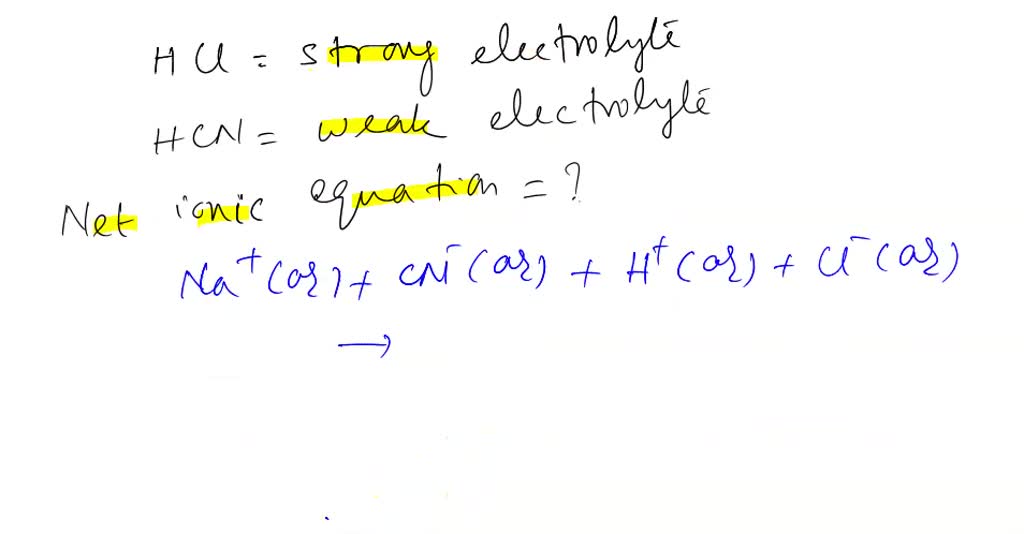 HCl = strong electrolyte
HCN = weak electrolyte
Net ionic equation = ?
Na⁺(aq) + CN⁻(aq) + H⁺(aq) + Cl⁻(aq)
→